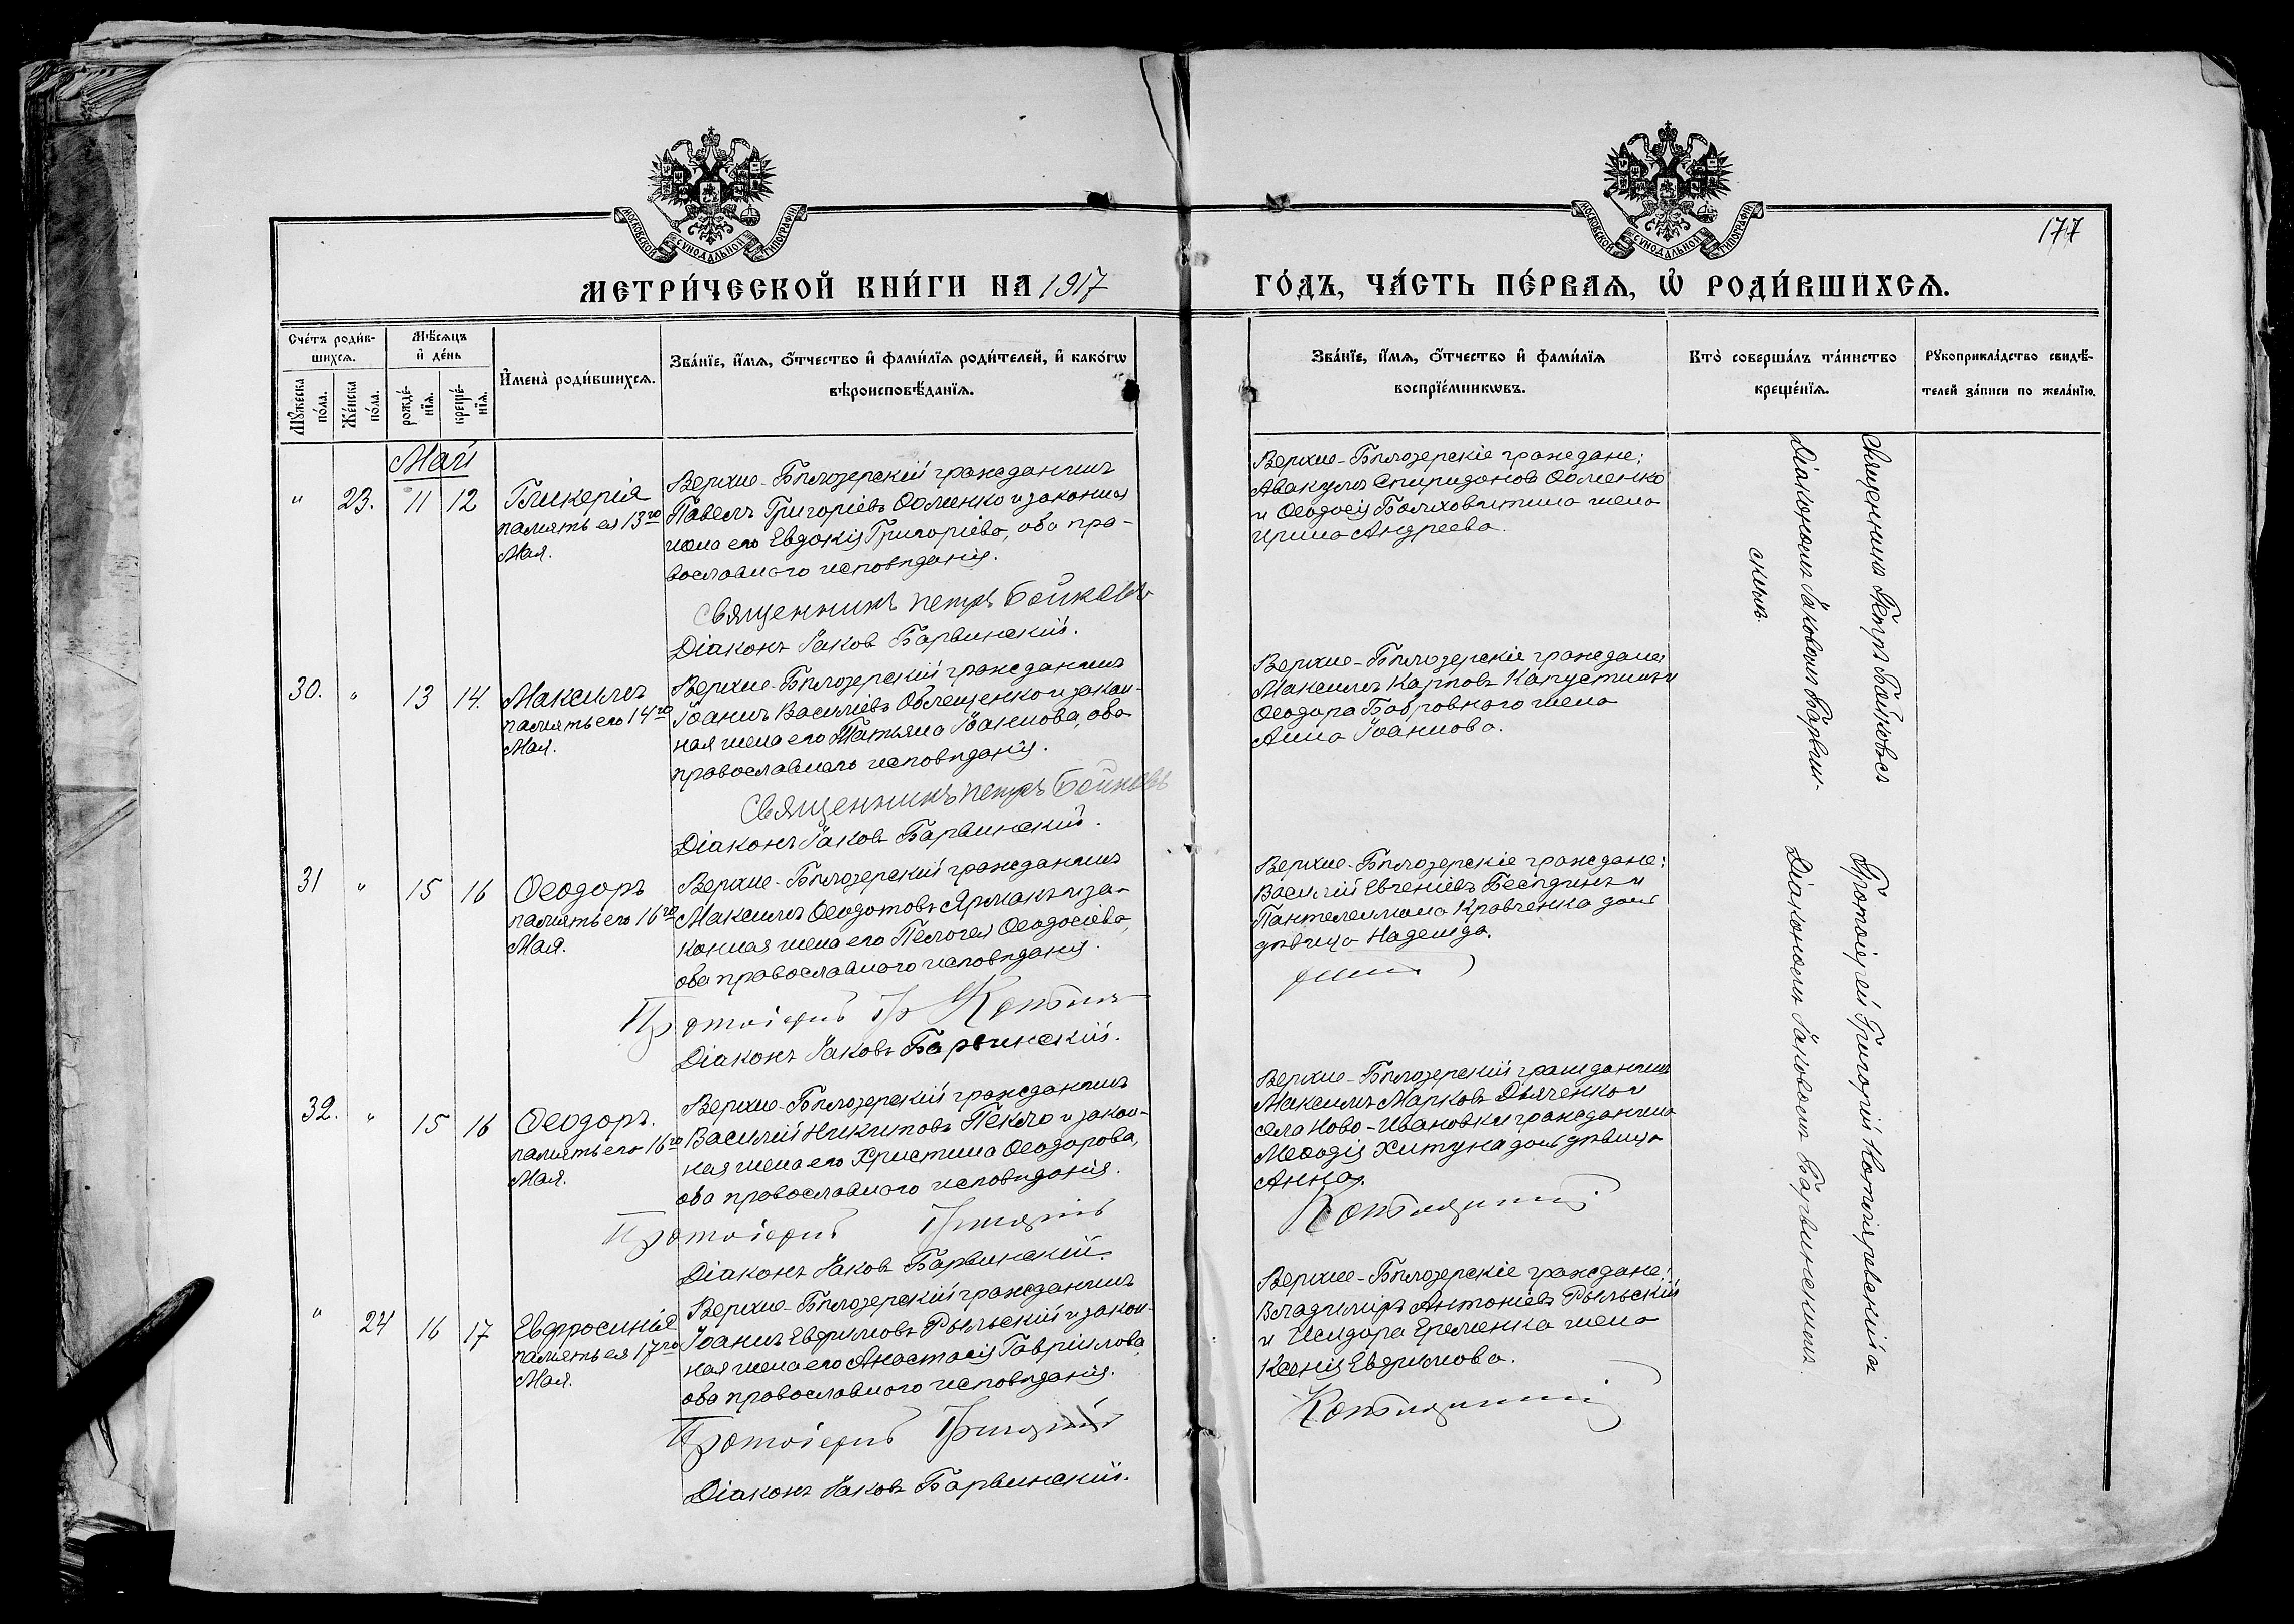 МОСКОВСКОЙ СѴНОДАЛЬНОЙ ТИПОГРАФІИ
МОСКОВСКОЙ СѴНОДАЛЬНОЙ ТИПОГРАФІИ
177
МЕТРИ́ЧЕСКОЙ КНИ́ГИ НА 1917
ГО́ДЪ, ЧА́СТЬ ПЕ́РВАЯ, Ѽ РОДИ́ВШИХСЯ.
Сче́тъ роди́в-
шихся.
Мꙋжеска по́ла.
Же́нска по́ла.
Мѣ́сяцъ
и҆ де́нь
рожде́-
нїѧ.
креще́-
нїѧ.
И҆мена̀ роди́вшихсѧ.
Зва́нїе, и҆́мѧ, ѻ҆́тчество и҆ фами́лїѧ роди́телей, и҆ како́гѡ
вѣроисповѣ́данїѧ.
Зва́нїе, и҆́мѧ, ѻ҆́тчество и҆ фами́лїѧ
воспрїе́мникѡвъ.
Кто̀ соверша́лъ та́инство
креще́нїѧ.
Рꙋкоприкла́дство свидѣ́-
телей за́писи по жела́нїю.
Май
" 23. 11 12
Гликерія
память ея 13го
Мая.
Верхне-Бѣлозерскій гражданинъ
Павелъ Григоріевъ Обменко и законная
жена его Евдокія Григоріева, оба пра-
вославнаго исповѣданія.
Священникъ Петръ Бойковъ
Діаконъ Іаковъ Барвинскій.
Верхне-Бѣлозерскіе граждане:
Авакумъ Спиридоновъ Обменко
и Ѳеодосія Болиховитина жена
Ирина Андреева.
Священникъ Петръ Бойковъ съ
Діакономъ Іаковомъ Барвин-
скимъ.
30. " 13 14.
Максимъ
память его 14го
Мая.
Верхне-Бѣлозерскій гражданинъ
Іоаннъ Василіевъ Облещенко и закон-
ная жена его Татьяна Іоаннова, оба
православнаго исповѣданія.
Священникъ Петръ Бойковъ
Діаконъ Іаковъ Барвинскій.
Верхне-Бѣлозерскіе граждане:
Максимъ Карповъ Капустинъ и
Ѳеодора Бобровнаго жена
Анна Іоаннова.
31 " 15 16
Ѳеодоръ
память его 16го
Мая.
Верхне-Бѣлозерскій гражданинъ
Максимъ Ѳеодотовъ Ярмакъ и за-
конная жена его Пелагея Ѳеодосіева,
оба православнаго исповѣданія.
Протоіерей Гр Котля-
Діаконъ Іаковъ Барвинскій.
Верхне-Бѣлозерскіе граждане:
Василій Евгеніевъ Бесѣдинъ и
Пантелеимона Кравченка дочь
дѣвица Надежда.
Протоіерей Григорій Котляревскій съ
Діакономъ Іаковомъ Барвинскимъ.
32. " 15 16
Ѳеодоръ.
память его 16го
Мая.
Верхне-Бѣлозерскій гражданинъ
Василій Никитовъ Пекло и закон-
ная жена его Христина Ѳеодорова,
оба православнаго исповѣданія.
Протоіерей Григорій
Діаконъ Іаковъ Барвинскій.
Верхне-Бѣлозерскій гражданинъ
Максимъ Марковъ Дьяченко и
села Ново-Ивановки гражданина
Меѳодія Хитуна дочь дѣвица
Анна.
Котляревскій
" 24 16 17
Евфросинія
память ея 17го
Мая.
Верхне-Бѣлозерскій гражданинъ
Іоаннъ Евфимовъ Рыльскій и закон-
ная жена его Анастасія Гавріилова,
оба православнаго исповѣданія.
Протоіерей Григорій
Діаконъ Іаковъ Барвинскій.
Верхне-Бѣлозерскіе граждане:
Владиміръ Антоніевъ Рыльскій
и Исидора Еременка жена
Ксенія Евфимова.
Котляревскій